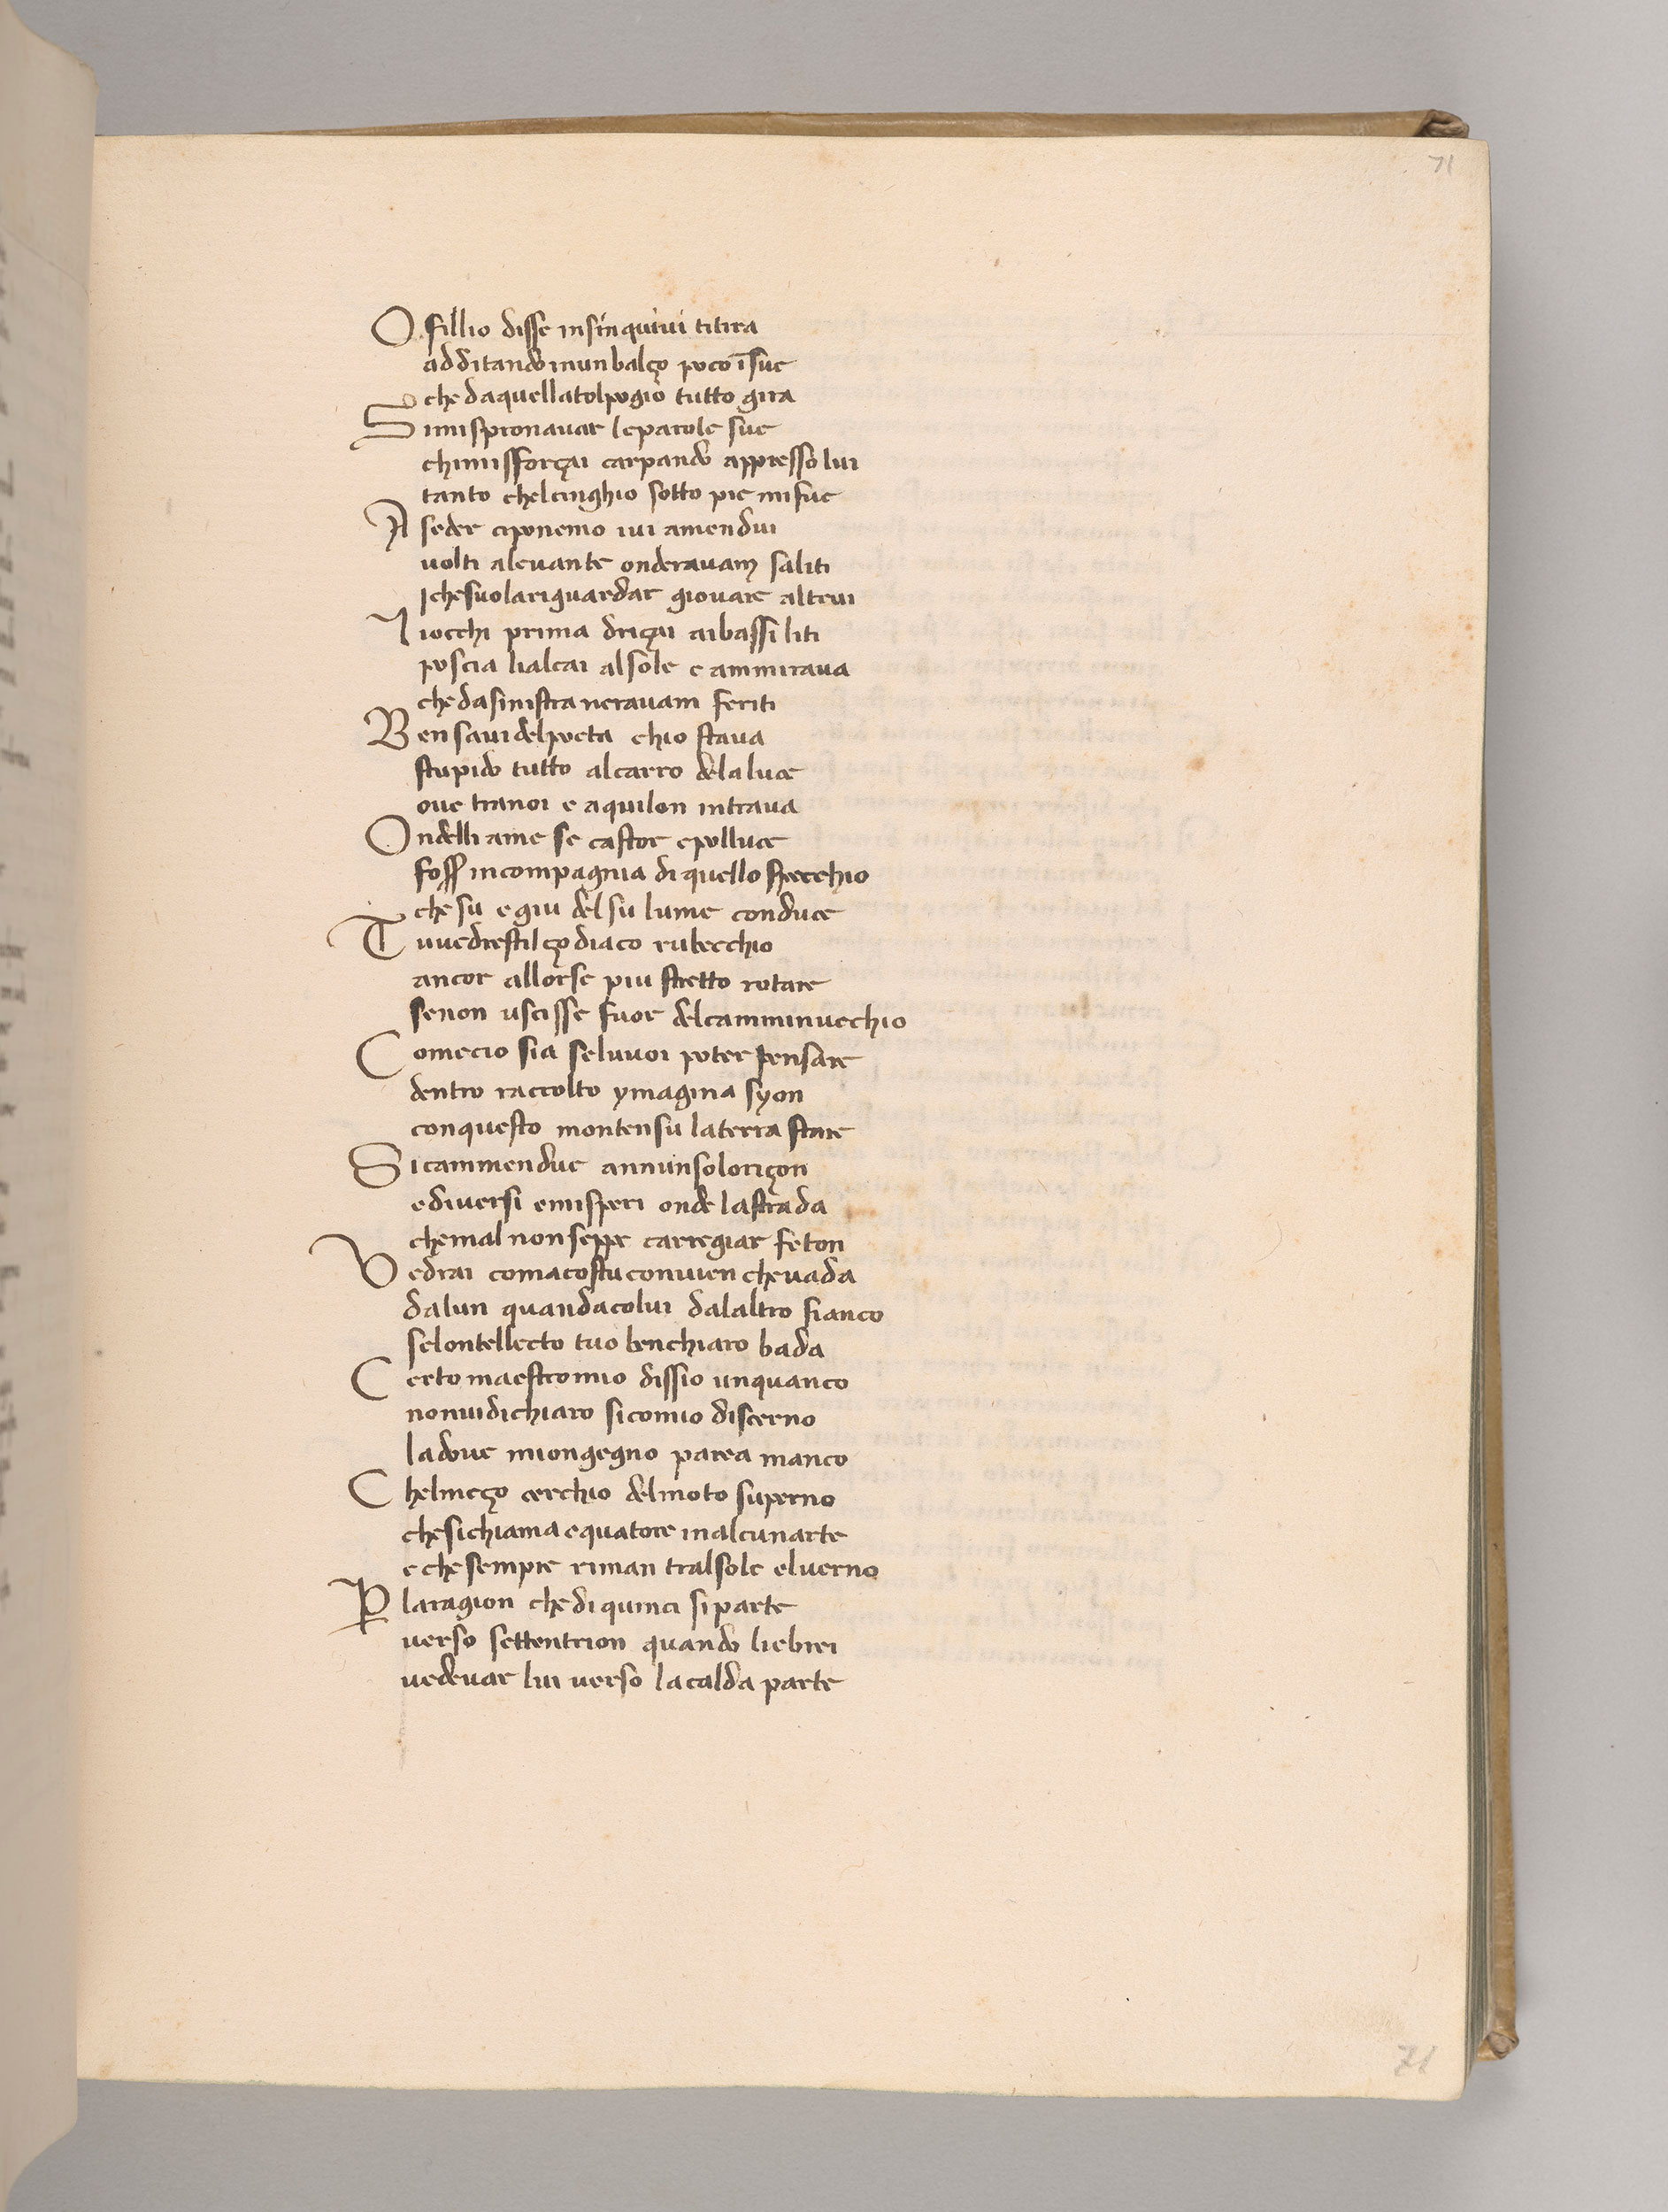 71
O fillio disse insin quivi titira
additando inun balço poco īsue
che daquellatolpogio tutto gira
Simispronavar leparole sue
chimisforçai carpando appresso lui
tanto chelcinghio sotto pie mifue
A seder ciponemo ivi amendui
volti alevante onderavam saliti
ichesuolariguardar giovare altrui
I iocchi prima driçai aibassi liti
poscia lialcai alsole e ammirava
chedasinistra neravam feriti
Ben savidelpoeta chio stava
stupido tutto alcarro delaluce
ove tranoi e aquilon intrava
Ondelli ame se castor epolluce
foss incompagnia di quello specchio
che su egiu del su lume conduce
Tuvedrestilçodiaco rubecchio
ancor allorse piu stretto rotare
senon uscisse fuor delcamminvechio
Comecio sia seluvoi poter pensare
dentro raccolto ymagina syon
conquesto montensu laterra stare
Sicammendue annunsoloriçon
ediversi emisperi onde lastrada
chemal nonseppe carregiar feton
Vedrai comacostuconvien chevada
dalun quandacolui dalaltro fianco
selontellecto tuo benchiaro bada
Certo maestromio dissio unquanco
nonvidichiaro sicomio discerno
ladove miongegno parea manco
Chelmeço cerchio delmoto superno
chesichiama equatore inalcunarte
e chesempre riman tralsole elverno
P laragion chediquinci siparte
verso settentrion quando liebrei
vedevar lui verso lacalda parte
71